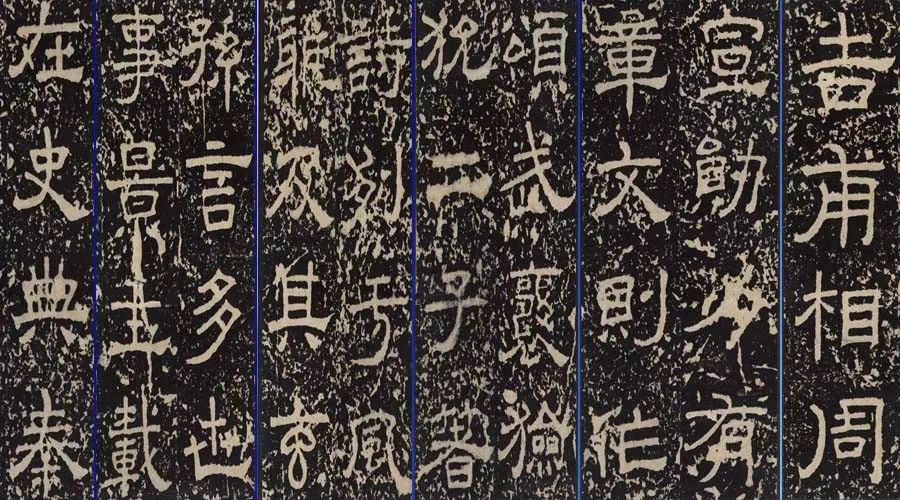 吉甫相周
宣勛力有
章文則作
頌武襄獫
狁二子著
詩列于風
雅及其玄
孫言多世
事景王載
在史典秦